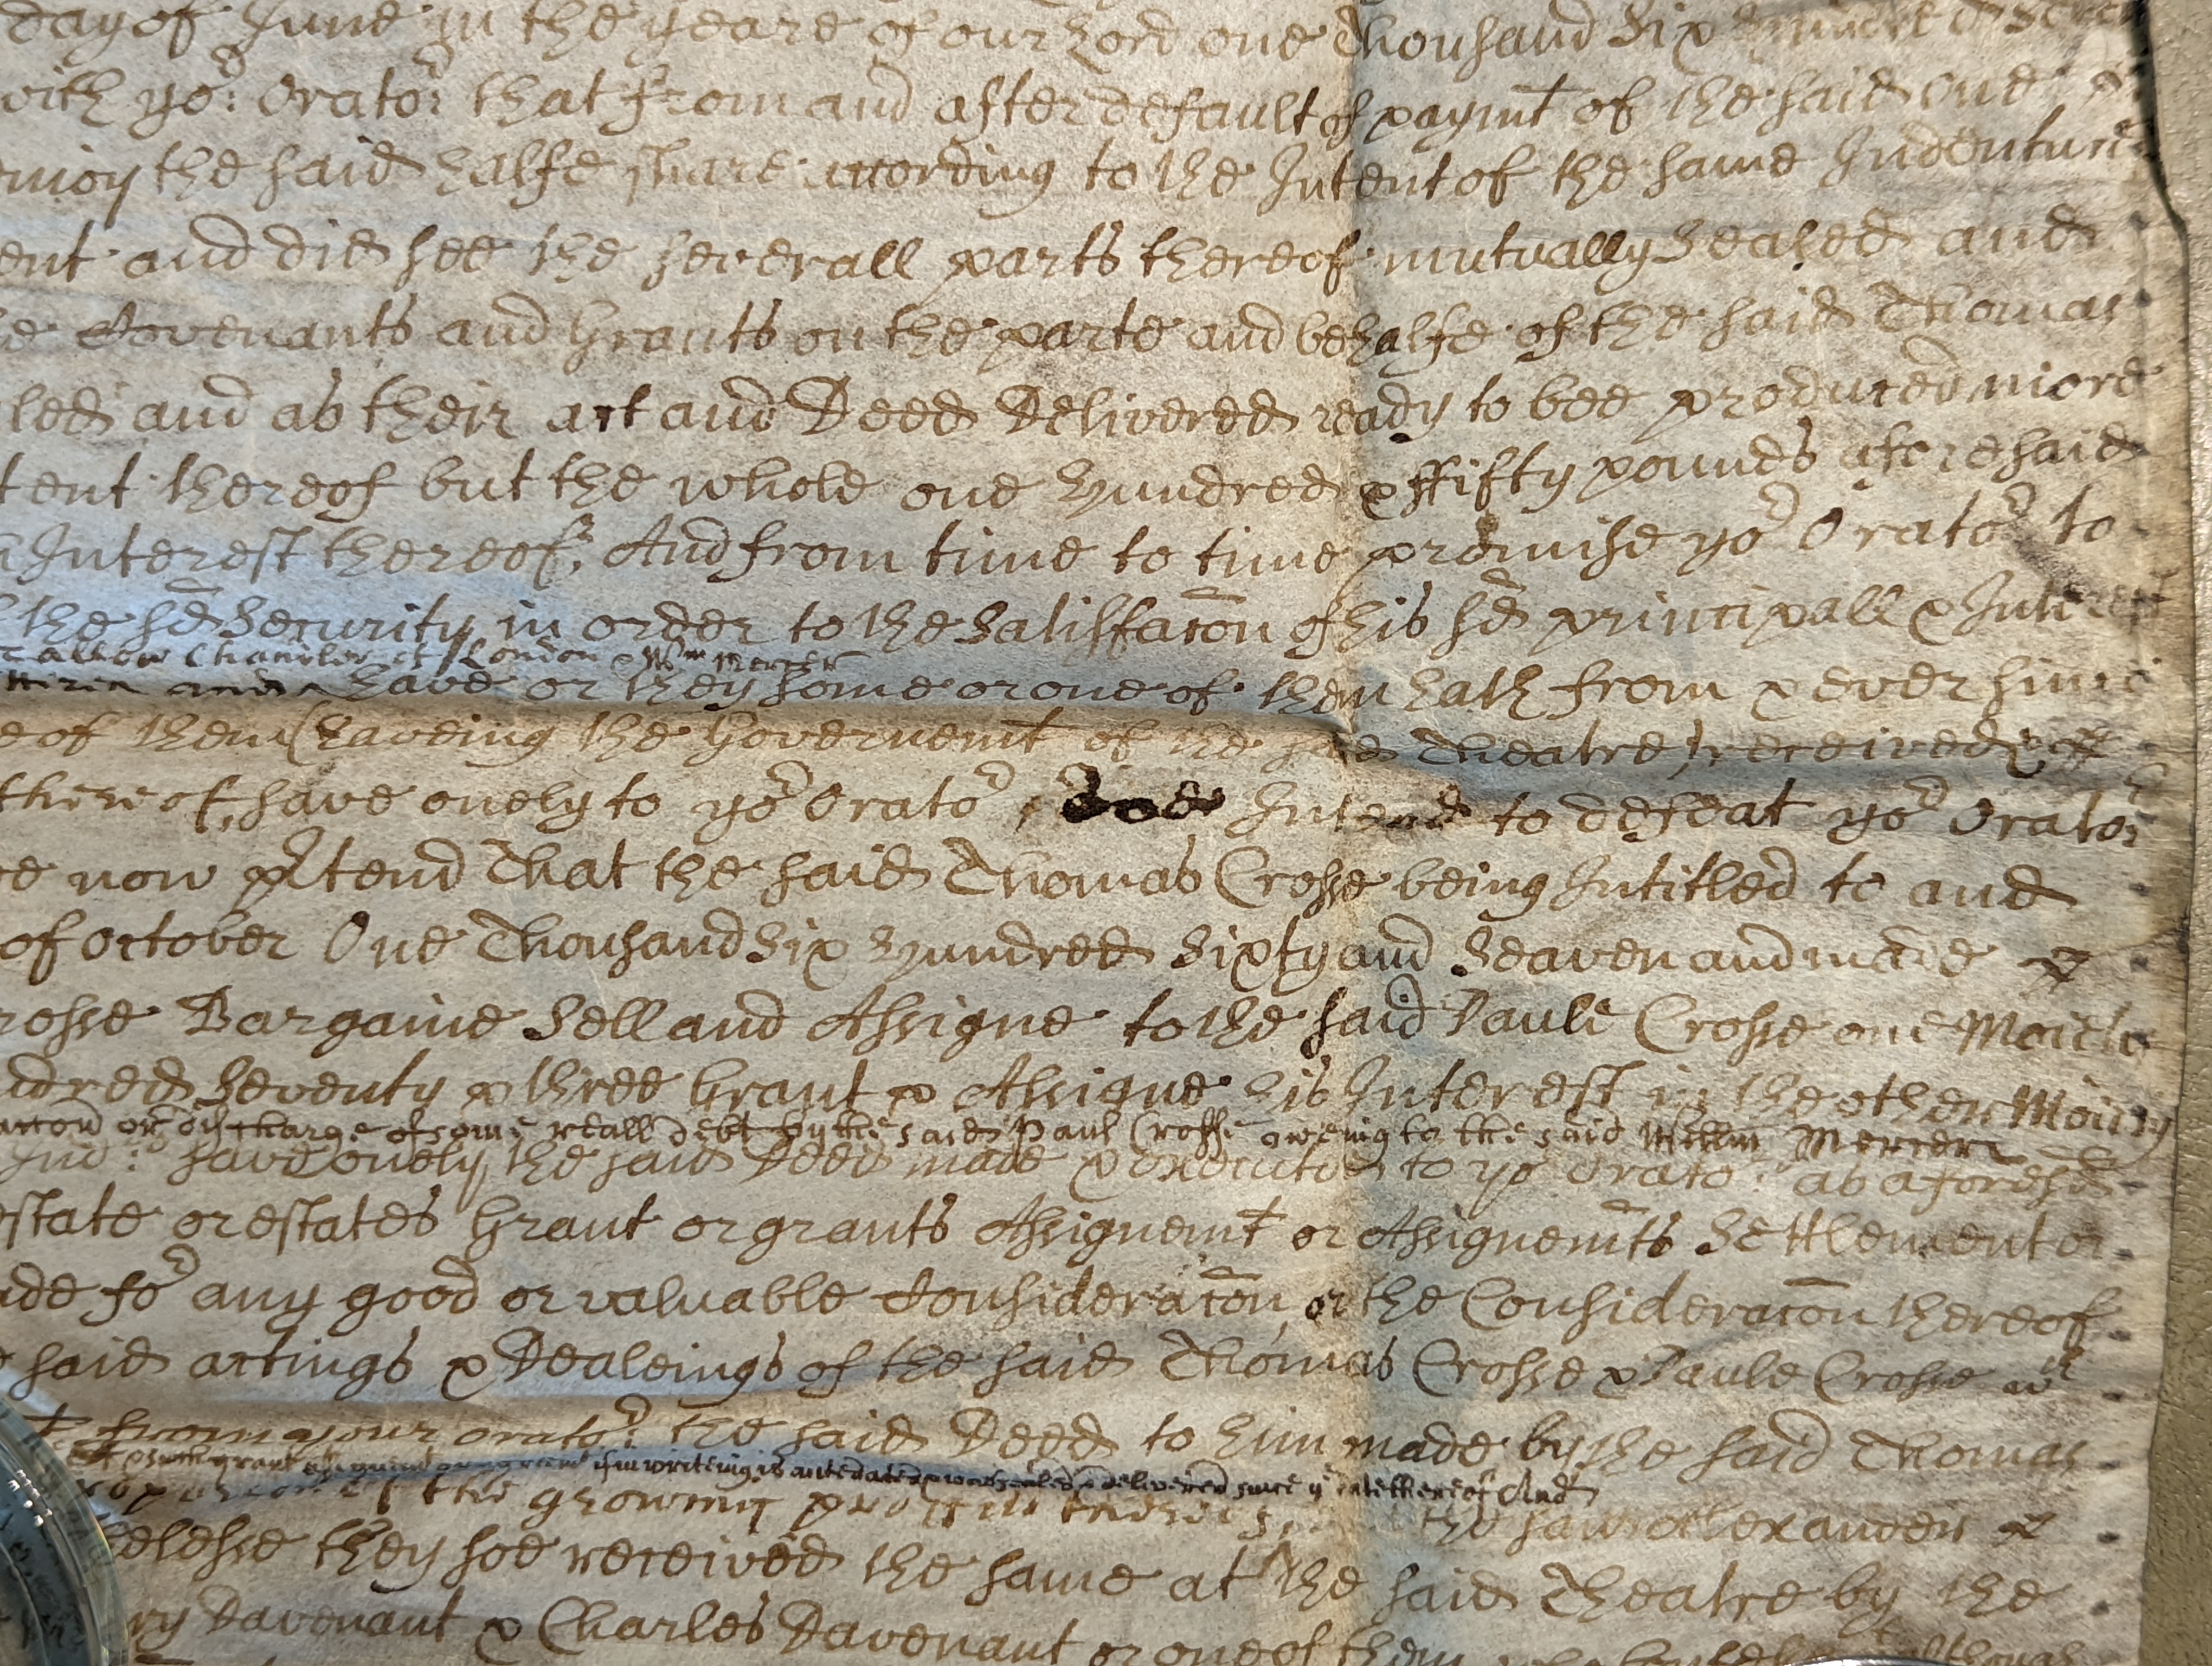 day of June in the yeare of our Lord one Thousand Six Hundred Seven
with yor: Orator: that from and after default of paymt of the said One
enioy the said halfe share according to the Intent of the same Indenture
ent and did see the severall parts thereof mutually Sealed and
Covenants and Grants on the parte and behalfe of the said Thomas
led and as their act and Deed Delivered ready to bee produced more
tent thereof but the whole one Hundred & ffifty pounds aforesaid
Interest thereof, And from time to time promise yor Orator to
the sd Security in order to the Satisffaccon of his sd principall & Interest
Chandler of London & Wm Mercer
have or they some or one of them hath from & ever since
e of them (haveing the Governemt of the said Theatre) received
thereof, save onely to yor Orator, doe Intend to defeat yor Orator
now prtend That the said Thomas Crosse being Intitled to and
of October One Thousand Six Hundred Sixty and Seaven and made
rosse Bargaine Sell and Assigne to the said Paule Crosse one Moiety
ndred Seventy & three Grant & Assigne his Interest in the other Moiety
or discharge of some reall debt by the said Paul Crosse oweing to the said Willm Mercer
save onely the said Deed made & executed to yor Orator: as aforesd
estate or estates Grant or grants Assignemt or Assignemts Settlement or
ade for any good or valuable Consideracon or the Consideracon thereof
said actings & Dealeings of the said Thomas Crosse & Paule Crosse wt
from your orator: the said Deed to him made by the said Thomas
grant in writeing is antedated & was sealed & delivered since ye date thereof And
the growing the said Alexander
elesse they soe received the same at the said Theatre by the
ry Davenant & Charles Davenant or one of them